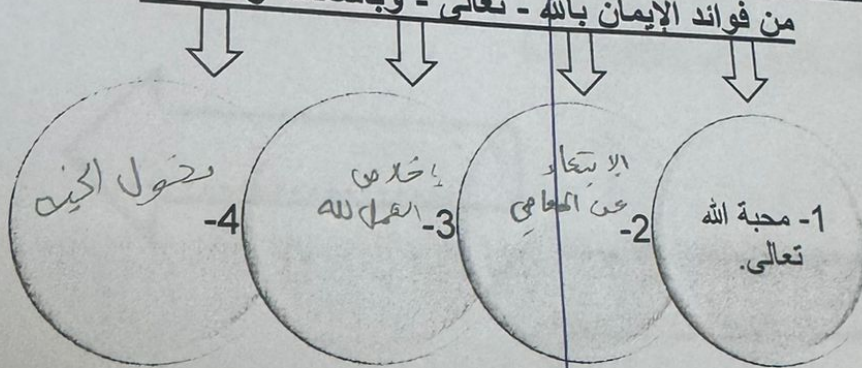 من فوائد الإيمان بالله - تعالى -
1- محبة الله
تعالى.
2- الابتعاد
عن المعاصي
3- إخلاص
العمل لله
4- دخول الجنه